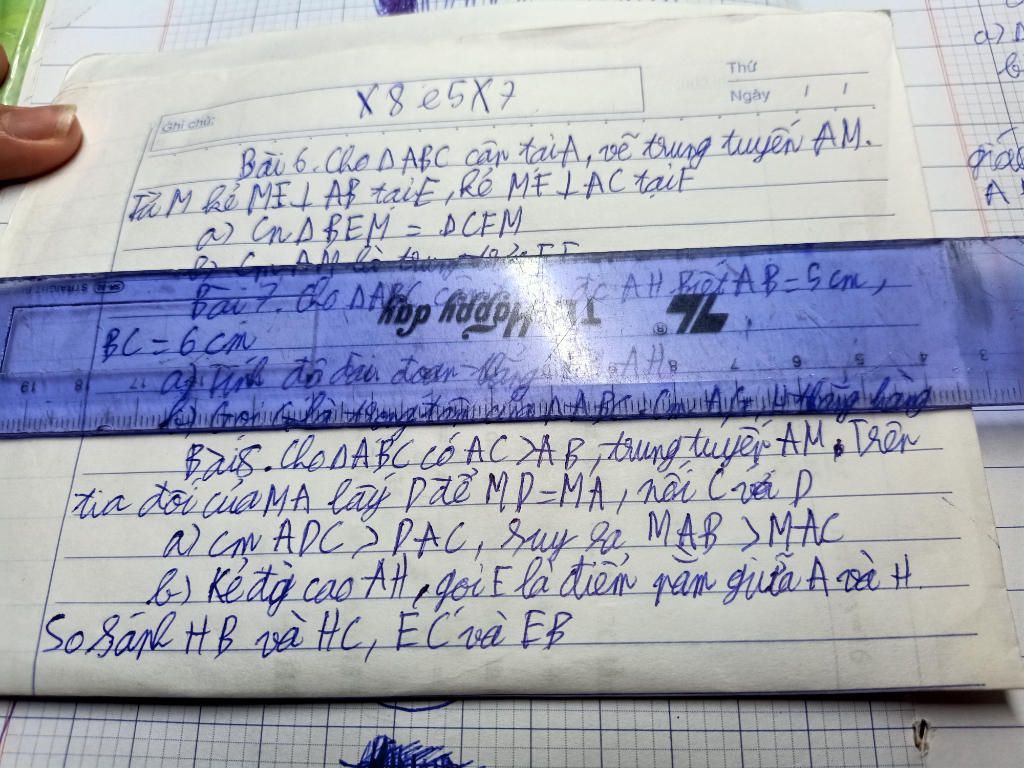 X8e5X7
Ghi chú:
Thứ
Ngày / /
Bài 6. Cho ΔABC cân tại A, vẽ trung tuyến AM.
Từ M kẻ ME⊥AB tại E, kẻ MF⊥AC tại F
a) Cm ΔBEM = ΔCFM
b) Cm AM là trung
Bài 7. Cho ΔABC AH. Biết AB = 5 cm,
TL Happy day
BC = 6 cm
a) Tính độ dài đoạn thẳng AH
19 18 17 8 7 6 5 4 3
b) Gọi G là trọng tâm của ΔABC. Cm A, G, H thẳng hàng
Bài 8. Cho ΔABC có AC > AB, trung tuyến AM. Trên
tia đối của MA lấy D để MD = MA, nối C với D
a) cm ADC > DAC, suy ra MAB > MAC
b) Kẻ đg cao AH, gọi E là điểm nằm giữa A và H.
So sánh HB và HC, EC và EB